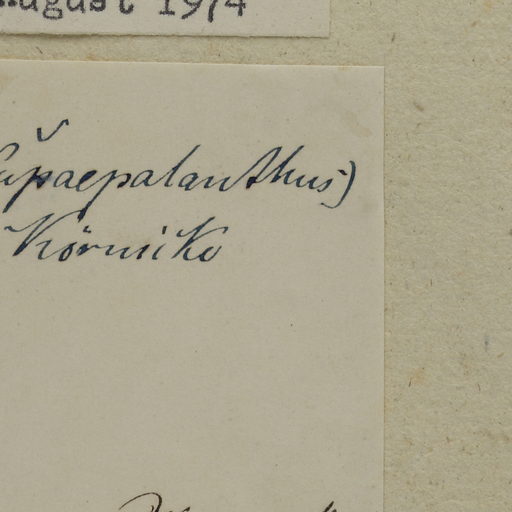 August 1974
Eupaepalanthus)
Körnicke